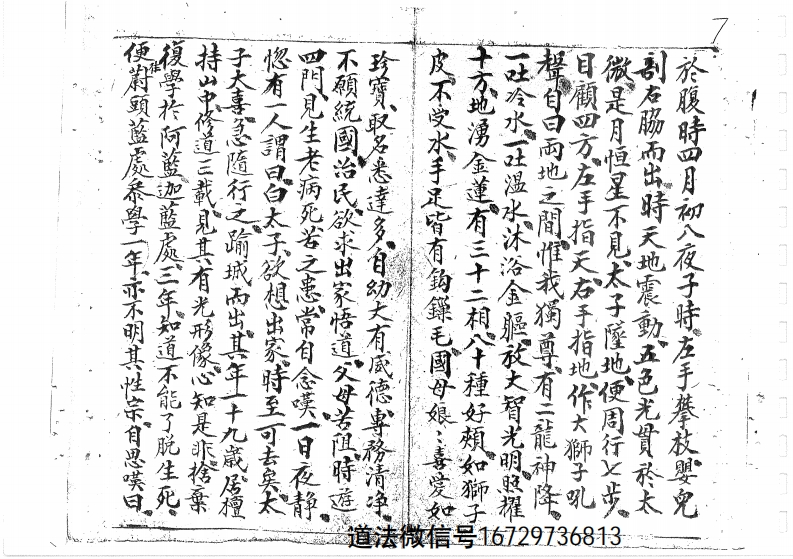 7
於腹時四月初八夜子時左手攀枝嬰兒
剖右脇而出時天地震動五色光貫於太
微是月恒星不見太子墜地便周行七步
目顧四方左手指天右手指地作大獅子吼
聲自曰兩地之間惟我獨尊有二龍神降
一吐冷水一吐溫水沐浴金軀放大智光明照耀
十方地湧金蓮有三十二相八十種好頰如獅子
皮不受水手足皆有鈎鏁毛國母娘〻喜愛如
珍寶取名悉達多自幼大有威德專務清净
不願統國治民欲求出家悟道父母苦阻時遊
四門見生老病死苦之患常自念嘆一日夜静
惚有一人謂曰白太子欲想出家時至可去矣太
子大喜急隨行之踰城而出其年一十九歲居檀
持山中修道三載見其有光形像心知是非捨棄
復學於阿藍迦藍處三年知道不能了脱生死
便蔚頭藍處叅學一年亦不明其性宗自思嘆曰
道法微信号16729736813